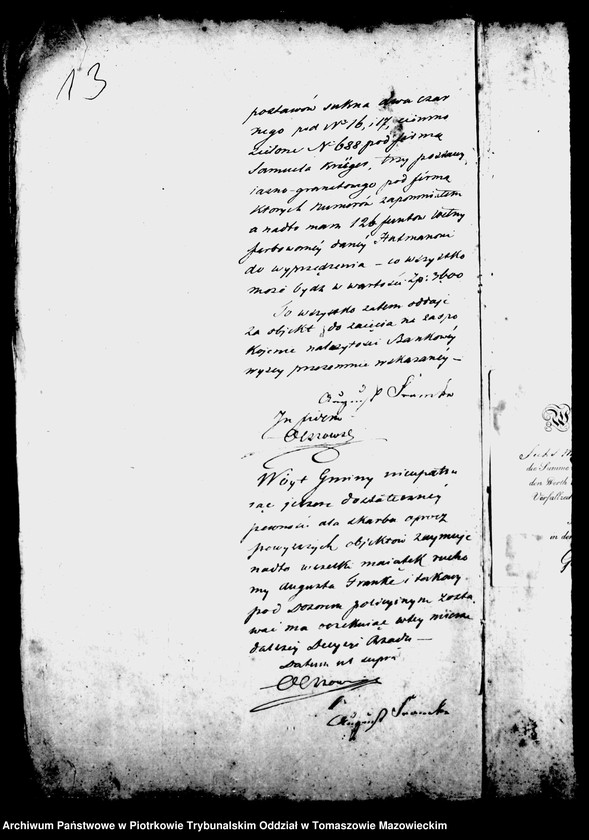 13
postawów sukna dwa czar
nego pod No 16, i 17, ciemno
zielone N 688 pod firmą
Samuela Krüger, trzy postawy
iasno granatowego pod firmą
których numerów zapomniałem
a nadto mam 126 funtów wełny
farbowanéy danéy
do wyprzędzenia – co wszystko
może bydź w wartości Zp: 3600
To wszystko zatem oddaję
za objekt do zaięcia na zaspo
kojenie należytości Bankowéy
wyżey przezemnie wskazanéy –
August Francke
In fidem
Olszowski
Wóyt Gminy nieupatru
iąc jeszcze dostatecznéy
pewności dla skarbu oprócz
powyższych objektów zaymuje
nadto wszelki maiątek rucho
my Augusta Franke i takowy
pod dozorem policyinym zosta
wać ma oczekuiąc w téy mierze
dalszéy Decyzyi Rządu –
Datum ut supra
Olszowski
August Francke
Sechs
die Summe
den Werth
Verfallzeit
in der
Archiwum Państwowe w Piotrkowie Trybunalskim Oddział w Tomaszowie Mazowieckim